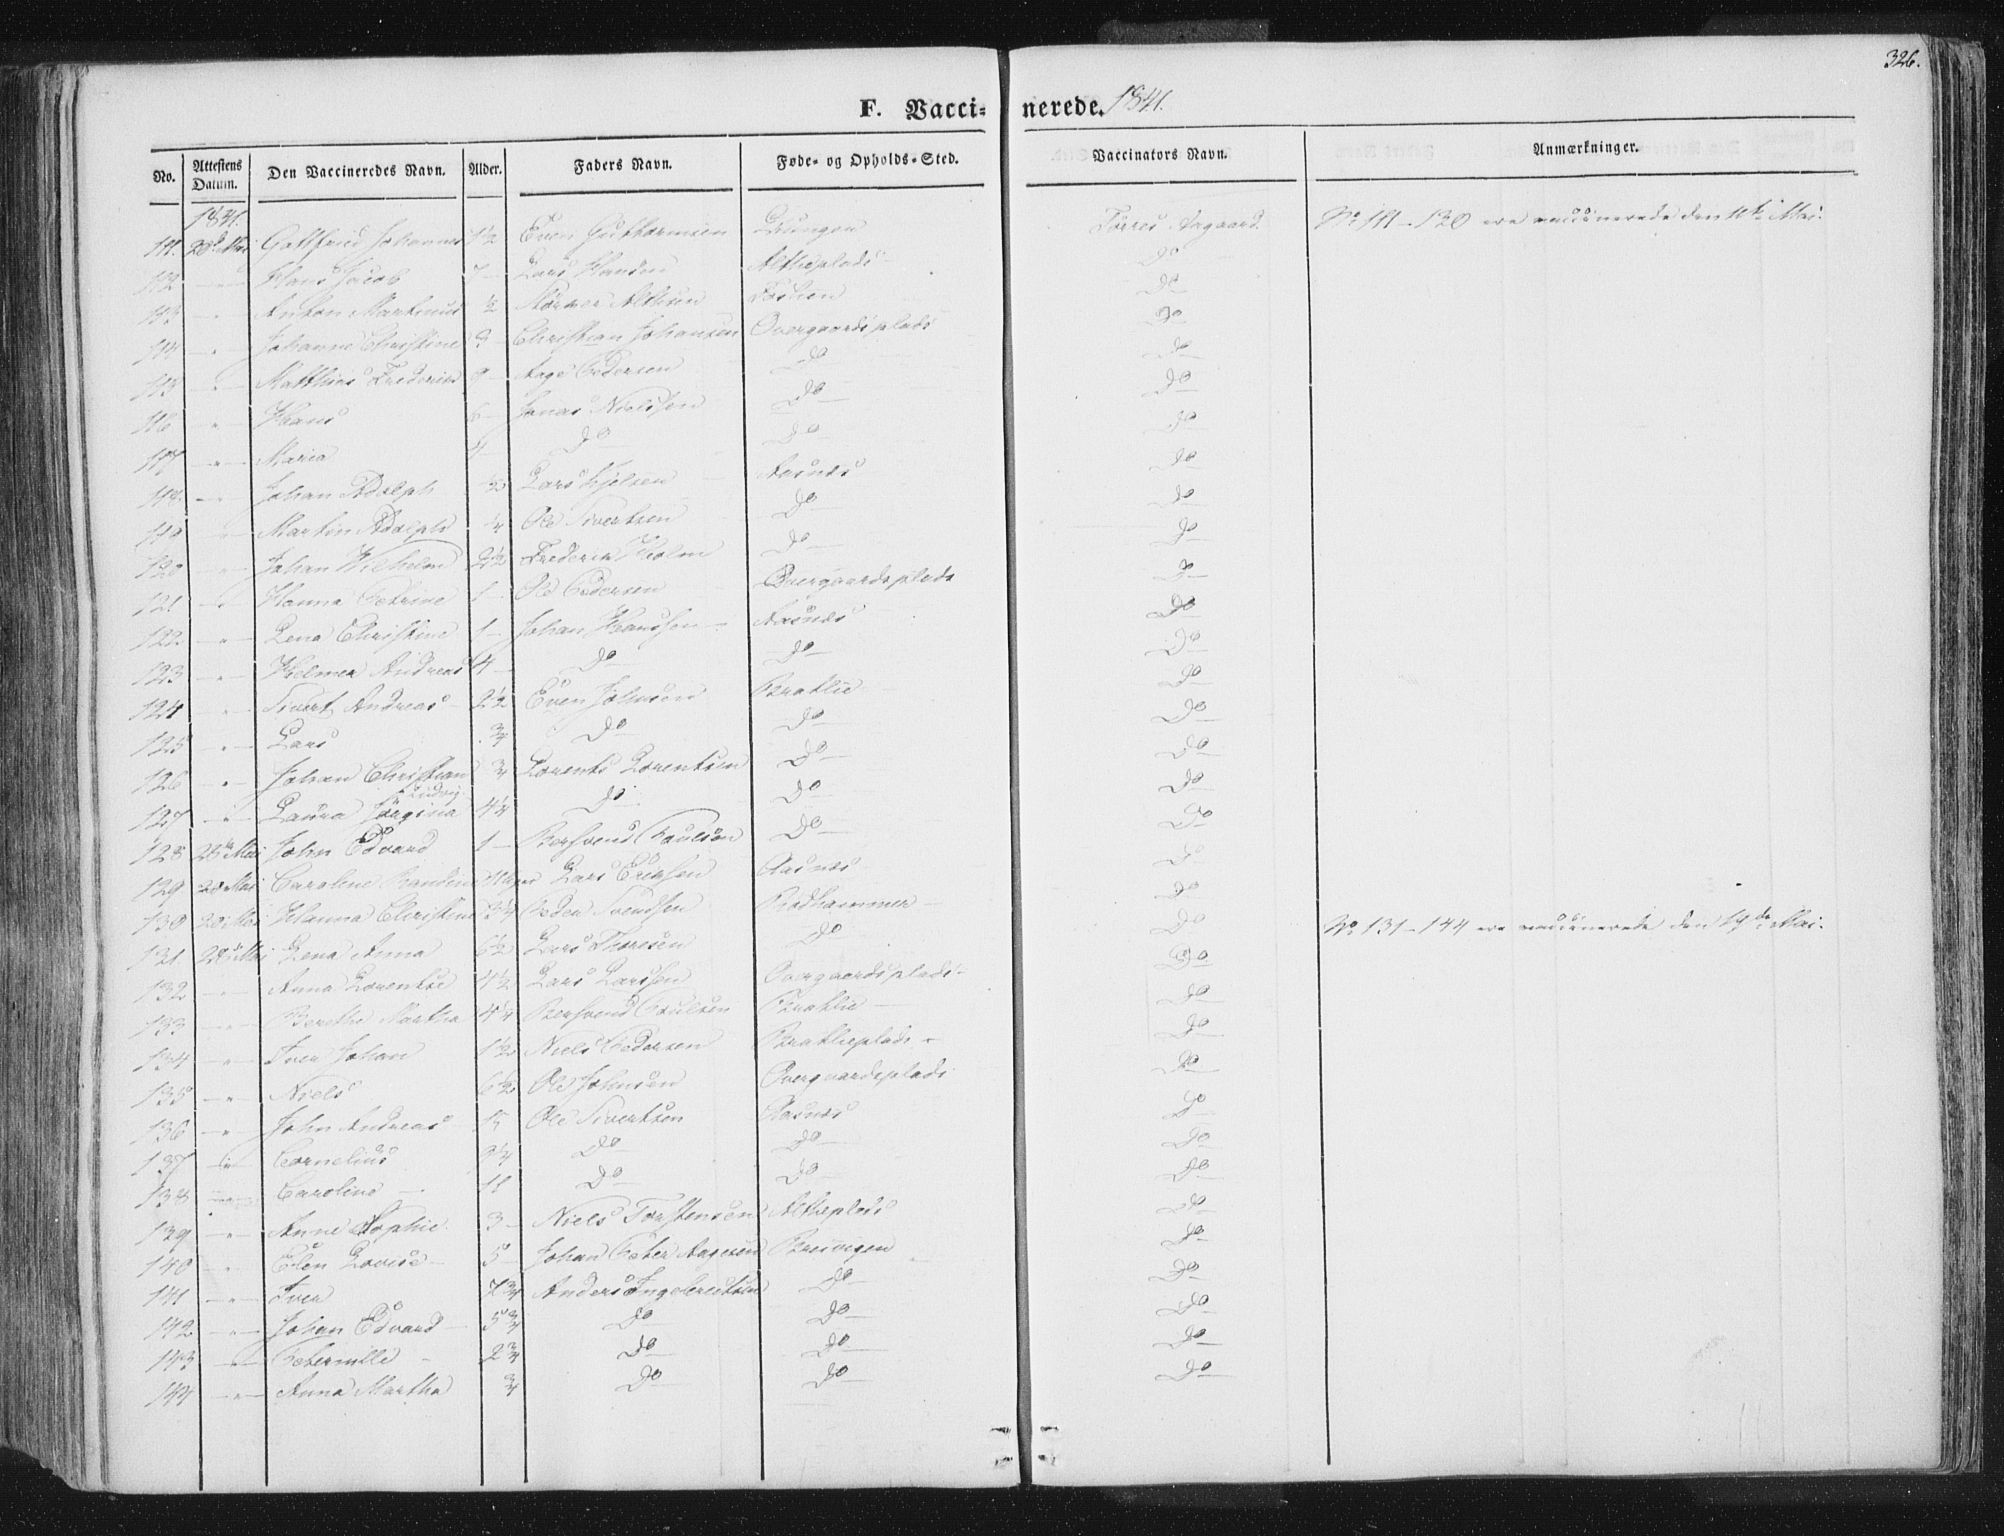 326.
F. Vaccinerede. 1841.
No. Attestens Datum. Den Vaccineredes Navn. Alder. Faders Navn. Føde- og Opholds-Sted. Vaccinators Navn. Anmærkninger.
1841.
111. 28de Mai Gottfried Johannes 1½ Even Guttormsen Tørres Aagaard. No 111-130 ere vaccinerede den Mai.
112 " Hans Jacob 7 Lars Hansen Altheplads Do
113 " Anton Martinus ½ Althsen Do
114 " Johanne Christine 9 Christian Johansen Overgaardsplads Do
115 " Matthias Frederik 9 Aage Pedersen Do Do
116 " Hans 6 Jonas Nielssen Do Do
117 " Maria 4 Do Do Do
118. " Johan Adolph ½ Lars Aasnæs Do
119 " Martin Adolph ¼ Ole Sivertsen Do Do
120 " Johan Wilhelm 2½ Frederik Holm Do Do
121 " Hanna Petrine 1 Ole Pedersen Overgaardsplads Do
122. " Lena Christine 1 Johan Hanssen Aasnæs Do
123 " Helmer Andreas 4 Do Do Do
124 " Sivert Andreas 2½ Even Johnsen Braklie Do
125 " Lars ¾ Do Do Do
126 " Johan Christian Ludvig ¾ Lorents Lorentsen Do Do
127 " Laura Jørgina 4¼ Do Do Do
128 28de Mai John Edvard 1 Bersvend Poulsen Do Do
129 28 Mai Caroline Lars Eriksen Aasnæs Do
130 28 Mai Hanna Christine 3¼ Peder Svendsen Rødhammer Do
131. 28de Mai Lena Anna 6½ Lars Thoresen Do Do No 131-144 ere vaccinerede den 19de Mai.
132 " Anna Lorentse 4½ Lars Larssen Overgaardsplads Do
133 " Berethe Martha 4¼ Bersvend Poulsen Braklie Do
134 " Iver Johan 1½ Niels Pedersen Braklieplads Do
135 " Niels 6½ Ole Johnsen Overgaardsplads Do
136 " John Andreas 15 Ole Sivertsen Aasnæs Do
137 " Cornelius 9¼ Do Do Do
138 " Caroline 11 Do Do Do
139 " Anne Sophie 3 Niels Torstensen Altheplads Do
140 " Elen Lovise 5 Johan Peter Aagesen Breivigen Do
141 " Iver 7¾ Anders Ingebrectsen Do Do
142 " Johan Edvard 5¾ Do Do Do
143 " Peternille 2¾ Do Do Do
144 " Anna Martha ¾ Do Do Do